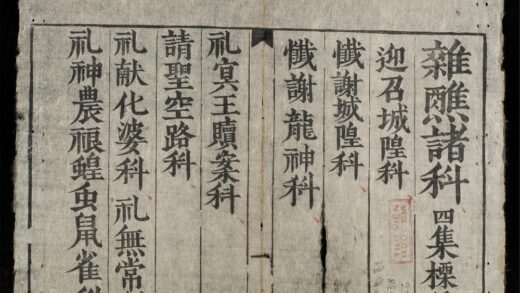 雜醮諸科 四集標
迎召城隍科
懺謝城隍科
懺謝龍神科
一
礼冥王贖案科
請聖空路科
礼献化婆科 礼無常
礼神農粮蝗虫鼠雀科